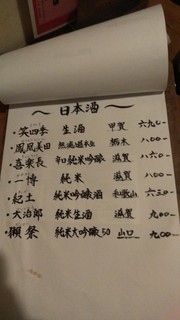 〜日本酒〜
・笑四季 生酒 甲賀 六九〇-
・鳳凰美田 無濾過本生 栃木 八〇〇-
・喜楽長 辛口純米吟醸 滋賀 八六〇-
・一博 純米 滋賀 八〇〇-
・紀土 純米吟醸酒 和歌山 六三〇-
・大治郎 純米生酒 滋賀 九〇〇-
・獺祭 純米大吟醸50 山口 九〇〇-